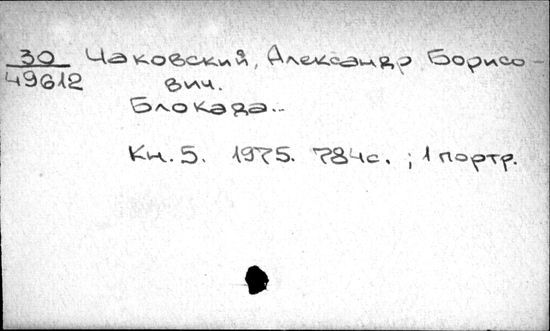 30 Чаковский, Александр Борисо-
49612 вич.
Блокада..
Кн. 5. 1975. 784с. ; 1 портр.